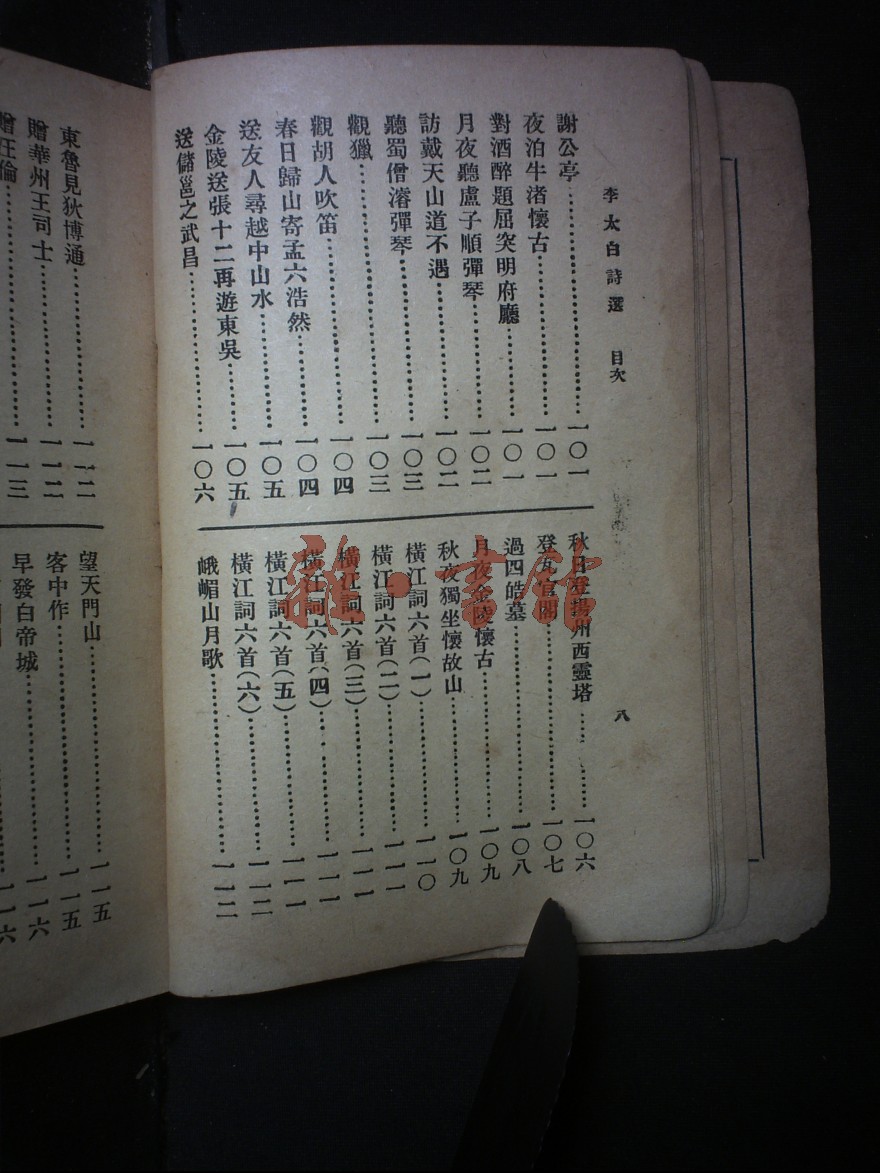 李太白詩選 目次 八
謝公亭⋯⋯一〇一
夜泊牛渚懷古⋯⋯一〇一
對酒醉題屈突明府廳⋯⋯一〇一
月夜聽盧子順彈琴⋯⋯一〇二
訪戴天山道不遇⋯⋯一〇二
聽蜀僧濬彈琴⋯⋯一〇三
觀獵⋯⋯一〇三
觀胡人吹笛⋯⋯一〇四
春日歸山寄孟六浩然⋯⋯一〇四
送友人尋越中山水⋯⋯一〇五
金陵送張十二再遊東吳⋯⋯一〇五
送儲邕之武昌⋯⋯一〇六
秋日登揚州西靈塔⋯⋯一〇六
登瓦官閣⋯⋯一〇七
過四皓墓⋯⋯一〇八
月夜金陵懷古⋯⋯一〇九
秋夜獨坐懷故山⋯⋯一〇九
橫江詞六首(一)⋯⋯一一〇
橫江詞六首(二)⋯⋯一一一
橫江詞六首(三)⋯⋯一一一
橫江詞六首(四)⋯⋯一一一
橫江詞六首(五)⋯⋯一一一
橫江詞六首(六)⋯⋯一一二
峨嵋山月歌⋯⋯一一二
東魯見狄博通⋯⋯一一二
贈華州王司士⋯⋯一一二
贈汪倫⋯⋯一一三
望天門山⋯⋯一一五
客中作⋯⋯一一五
早發白帝城⋯⋯一一六
一一六
雅·書館